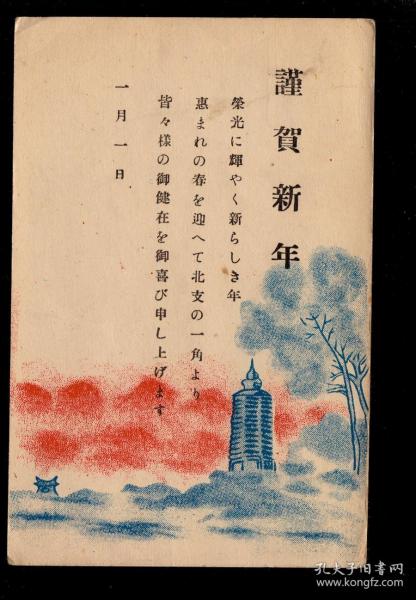 謹賀新年
榮光に輝やく新らしき年
惠まれの春を迎へて北支の一角より
皆々樣の御健在を御喜び申し上げます
一月一日
孔夫子旧书网
www.kongfz.com